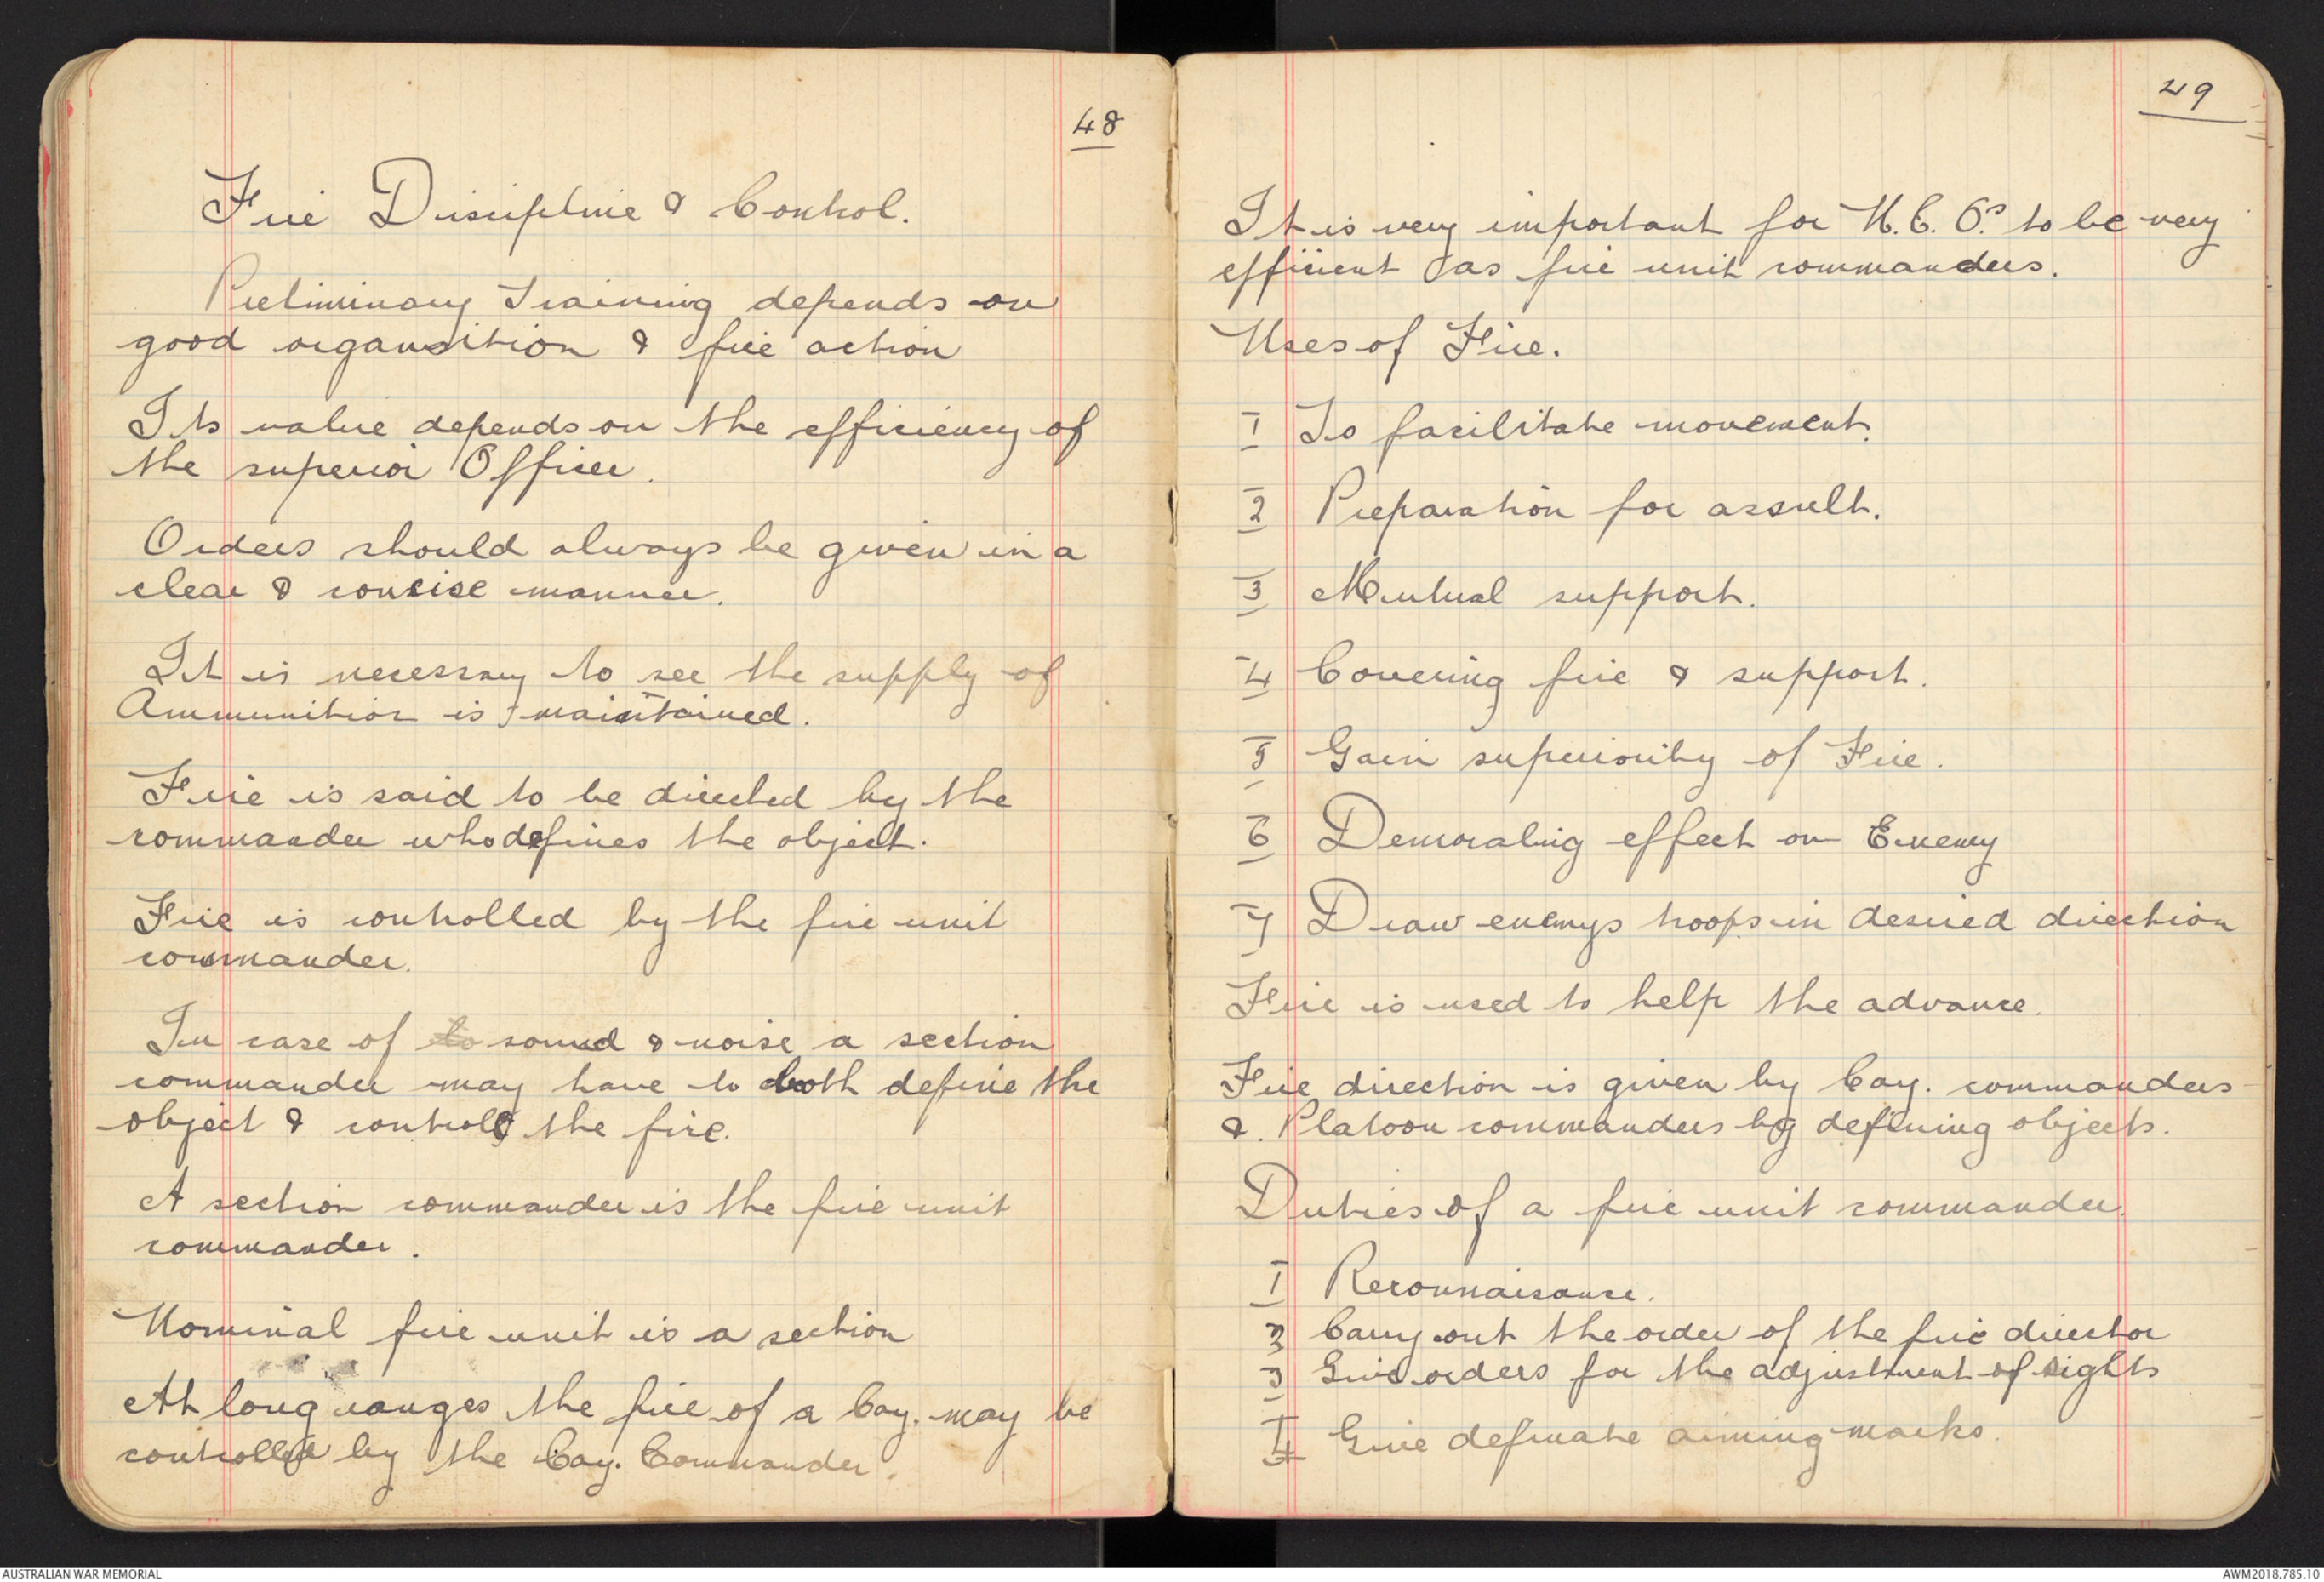 48
Fire Discipline & Control.
Preliminary Training depends on
good organisition & fire action
Its value depends on the efficiency of
the superior Officer.
Orders should always be given in a
clear & concise manner.
It is necessary to see the supply of
Ammunition is maintained.
Fire is said to be directed by the
commander who defines the object.
Fire is controlled by the fire unit
commander.
In case of to sound & noise a section
commander may have to both define the
object & control the fire.
A section commander is the fire unit
commander.
Nominal fire unit is a section
At long ranges the fire of a Coy. may be
controlled by the Coy. Commander.
49
It is very important for N.C.Os to be very
efficient as fire unit commanders.
Uses of Fire.
1 To facilitate movement.
2 Preparation for assult.
3 Mutual support.
4 Covering fire & support.
5 Gain superiority of Fire.
6 Demoraling effect on Enemy
7 Draw enemys troops in desired direction
Fire is used to help the advance.
Fire direction is given by Coy. commanders
&. Platoon commanders by defining objects.
Duties of a fire unit commander.
1 Reconnaisance.
2 Carry out the order of the fire director
3 Give orders for the adjustment of sights
4 Give definate aiming marks.
AUSTRALIAN WAR MEMORIAL
AWM2018.785.10